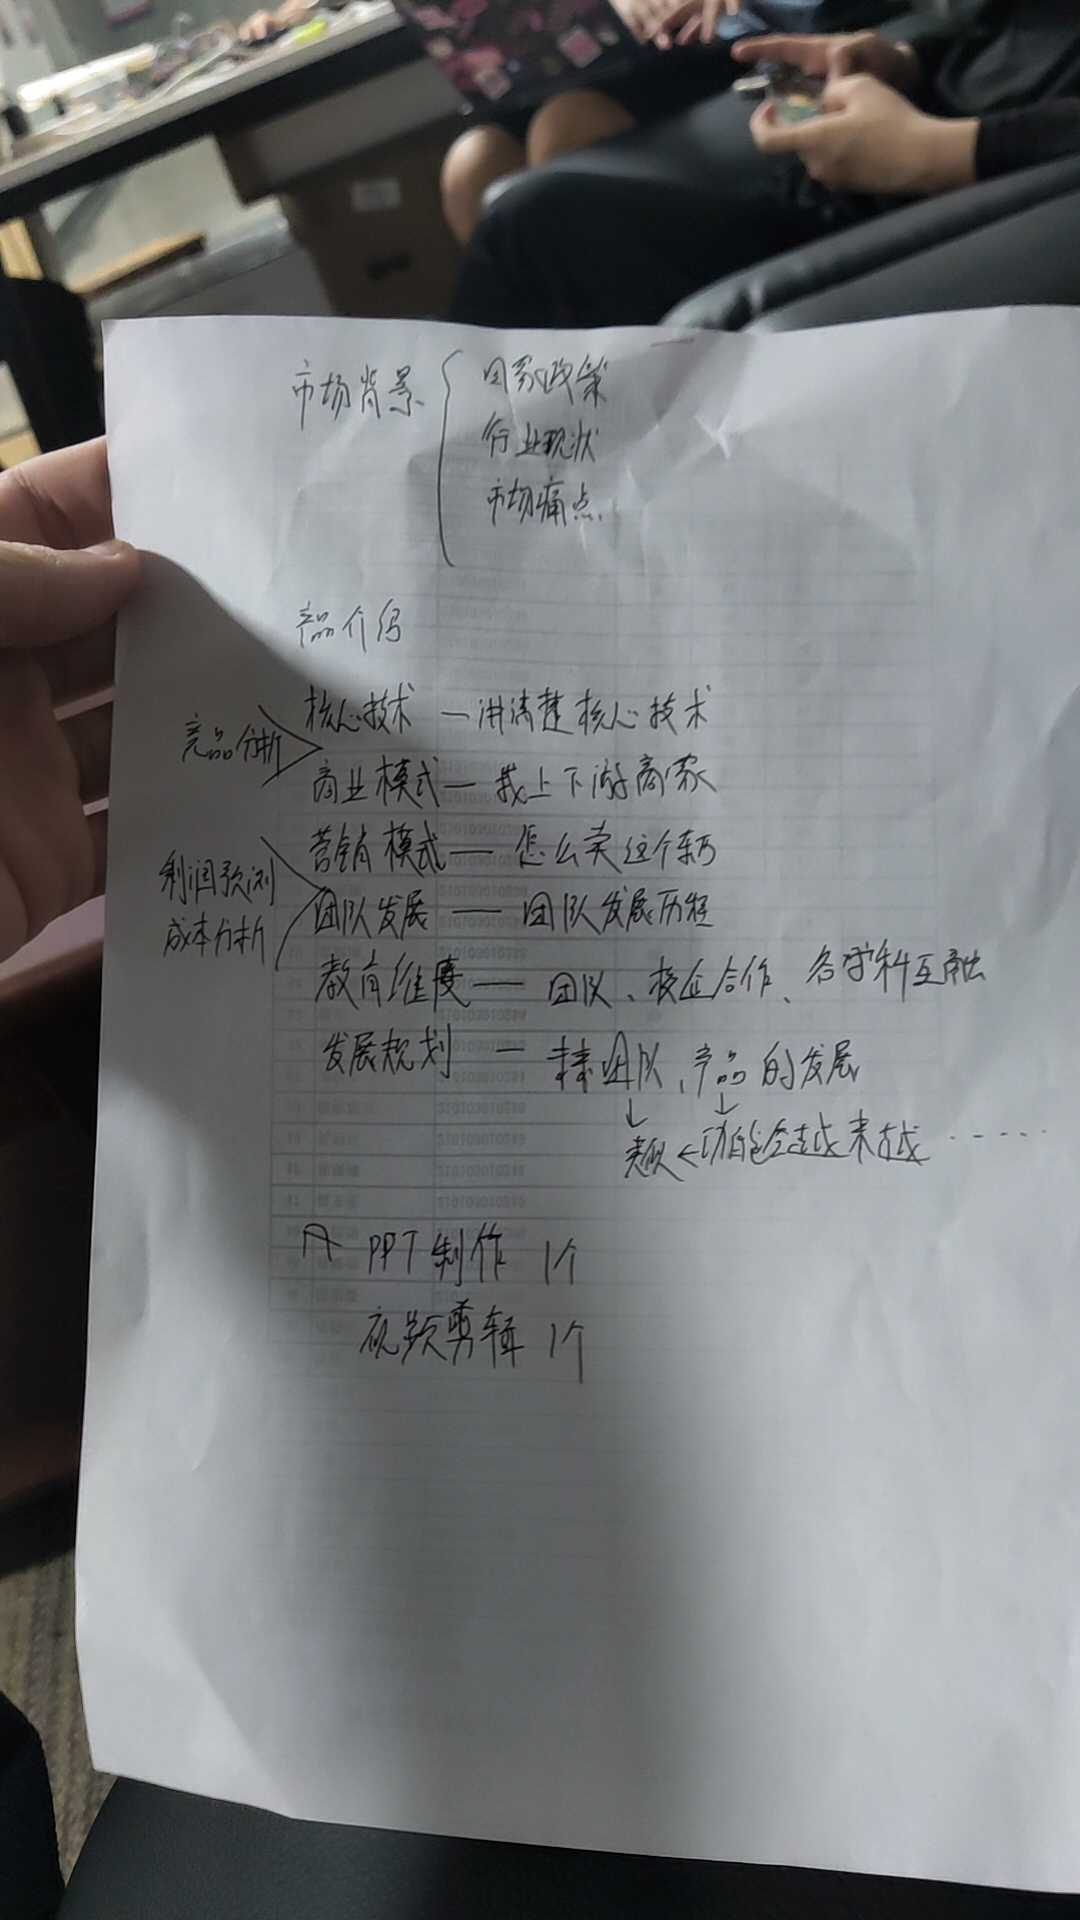 市场背景
国家政策
行业现状
市场痛点
产品介绍
竞品分析
核心技术 — 讲清楚核心技术
商业模式 — 找上下游商家
利润预测
成本分析
营销模式 — 怎么卖这个东西
团队发展 — 团队发展历程
教育维度 — 团队、校企合作、各学科互融
发展规划 — 团队、产品的发展
↓ ↓
← 功能会越来越……
PPT制作 1个
视频剪辑 1个